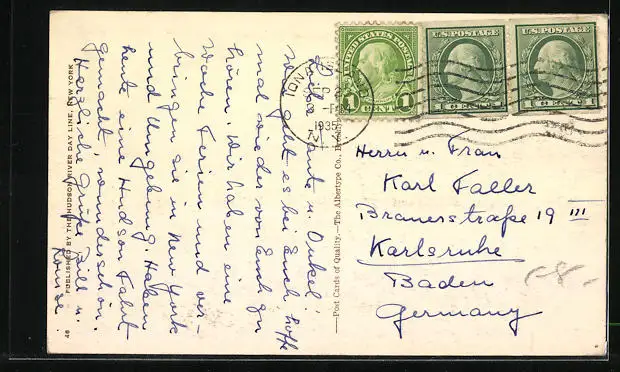 Liebe Tante u. Onkel!
Wie geht es bei Euch hoffe
mal wieder von Euch zu
hören. Wir haben eine
Woche Ferien und ver-
bringen sie in New York
und Umgebung. Haben
heute eine Hudson Fahrt
gemacht, wunderschön.
Herzliche Grüße Bill u.
Louise
PUBLISHED BY THE HUDSON RIVER DAY LINE, NEW YORK
46
—Post Cards of Quality.—The Albertype Co., Brooklyn
UNITED STATES POSTAGE
1 CENT 1
U.S. POSTAGE
1 CENT 1
U.S. POSTAGE
1 CENT 1
1935
Herrn u. Frau
Karl Faller
Brauerstraße 19 III
Karlsruhe
Baden
Germany